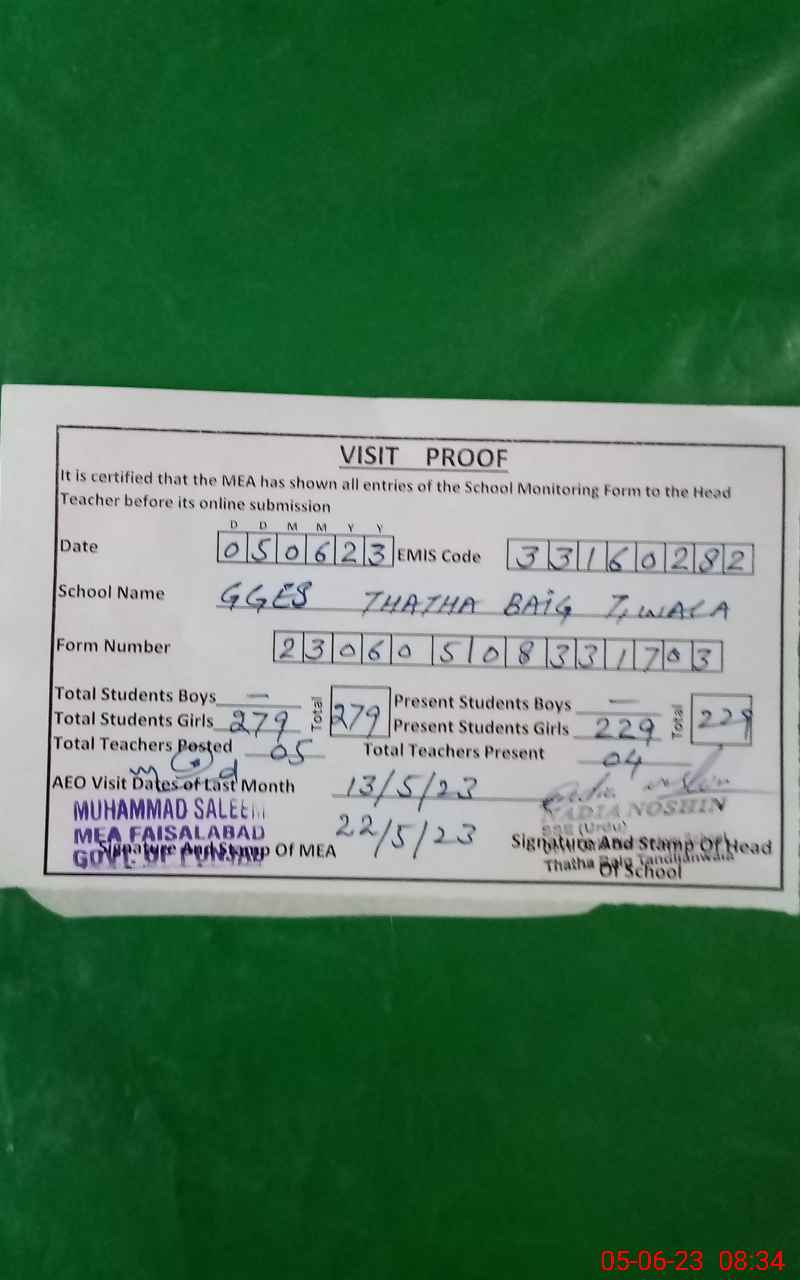 VISIT PROOF
It is certified that the MEA has shown all entries of the School Monitoring Form to the Head
Teacher before its online submission
D D M M Y Y
Date 050623 EMIS Code 33160282
School Name GGES THATHA BAIG T,WALA
Form Number 230605083331703
Total Students Boys — Total 279 Present Students Boys — Total 229
Total Students Girls 279 Present Students Girls 229
Total Teachers Posted 05 Total Teachers Present 04
AEO Visit Dates of Last Month 13/5/23
22/5/23
MUHAMMAD SALEEM
MEA FAISALABAD
GOVT. OF PUNJAB
Signature And Stamp Of MEA
NADIA NOSHIN
SSE (Urdu)
Signature And Stamp Of Head
Thatha Baig Tandlianwala
Of School
05-06-23 08:34